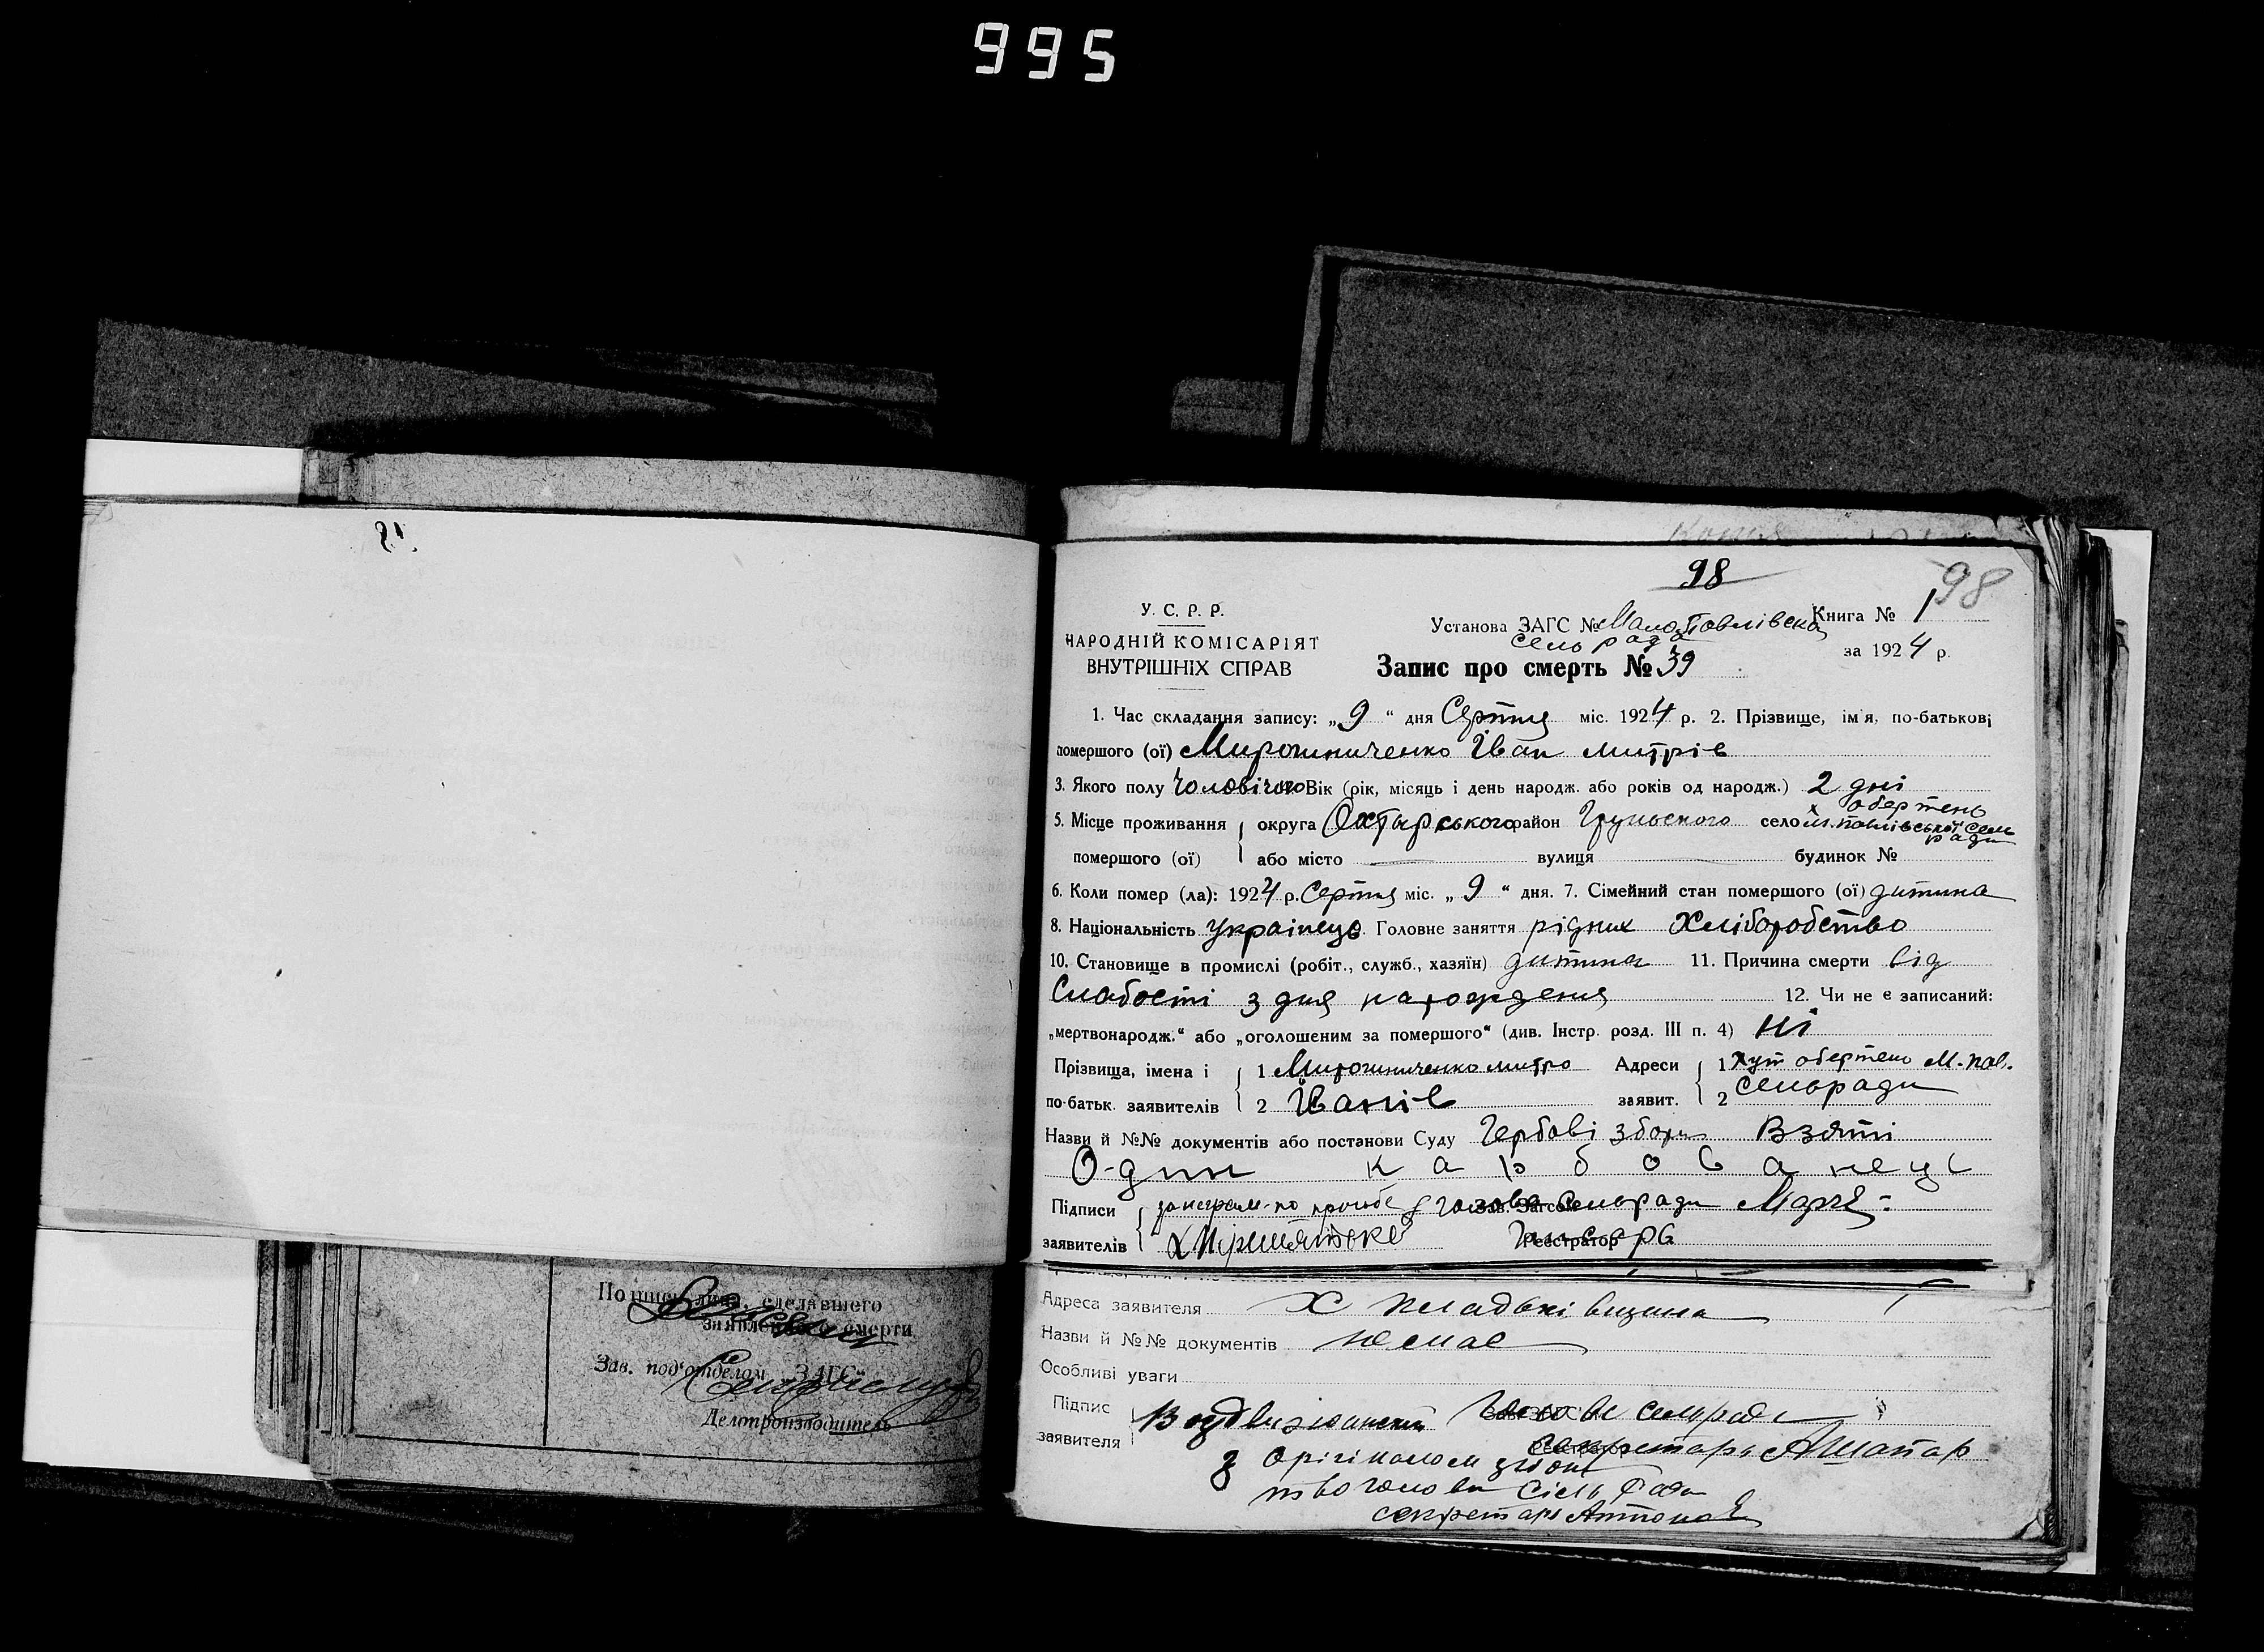 995
98
98
У. С. Р. Р.
НАРОДНІЙ КОМІСАРІЯТ
ВНУТРІШНІХ СПРАВ
Установа ЗАГС № Мало Павлівська Книга № 1
сельрада
за 1924 р.
Запис про смерть № 39
1. Час складання запису: „9“ дня Серпня міс. 1924 р. 2. Прізвище, ім'я, по-батькові
помершого (ої) Мирошниченко Іван митрів
3. Якого полу Чоловічого Вік (рік, місяць і день народж. або років од народж.) 2 дні
5. Місце проживання округа Охтырського район Груньского село х обертень м. павлівської сель ради
помершого (ої) або місто вулиця будинок №
6. Коли помер (ла): 1924 р. Серпня міс. „9“ дня. 7. Сімейний стан помершого (ої) дитина
8. Національність Українець. Головне заняття рідних Хліборобство
10. Становище в промислі (робіт., служб., хазяїн) дитина 11. Причина смерти від
Слабости з дня нарождения 12. Чи не є записаний:
„мертвонародж.“ або „оголошеним за помершого“ (див. Інстр. розд. III п. 4) ні
Прізвища, імена і 1 Мирошниченко митро Адреси 1 Хут обертень М-пав.
по-батьк. заявителів 2 Іванів заявит. 2 сельради
Назви й №№ документів або постанови Суду Гербові збори Взяті
Один карбованець
Підписи за неграм. по прозбе голова сельради
заявителів Реєстратор
Адреса заявителя х
Назви й №№ документів немає
Особливі уваги
Підпис голова сельради
заявителя секретарь АШапар
З орігіналом згідно
голови сіль Ради
секретарь
Подпись лица, сделавшего
заявление о смерти
Зав. под'отделом „ЗАГС“
Делопроизводитель